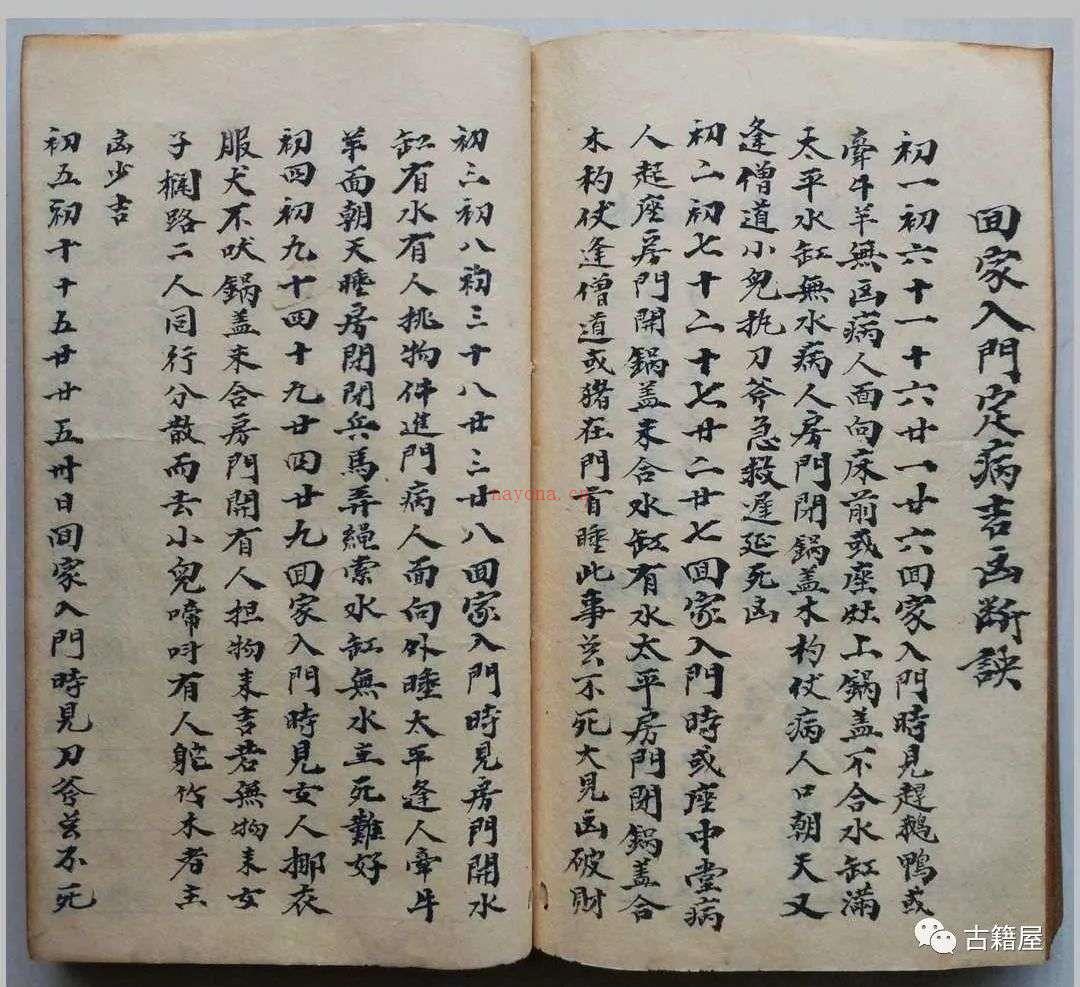 回家入門定病吉凶断訣
初一初六十一十六廿一廿六回家入門時見趕鵝鴨或
牽牛羊無凶病人面向床前或座灶上鍋盖不合水缸滿
太平水缸無水病人房門閉鍋盖木杓仗病人口朝天又
逢僧道小兒执刀斧急救遲延死凶
初二初七十二十七廿二廿七回家入門時或座中堂病
人起座房門開鍋盖未合水缸有水太平房門閉鍋盖合
木杓仗逢僧道或猪在門首睡此事若不死大見凶破財
初三初八初三十八廿三廿八回家入門時見房門開水
缸有水有人挑物件進門病人面向外睡太平逢人牽牛
羊面朝天睡房閉閉兵馬弄繩索水缸無水主死難好
初四初九十四十九廿四廿九回家入門時見女人挪衣
服犬不吠鍋盖未合房門開有人担物来吉若無物来女
子攔路二人同行分散而去小兒啼呌有人䑨竹木者主
凶少吉
初五初十十五廿廿五卅日回家入門時見刀斧若不死
nayona.cn
古籍屋